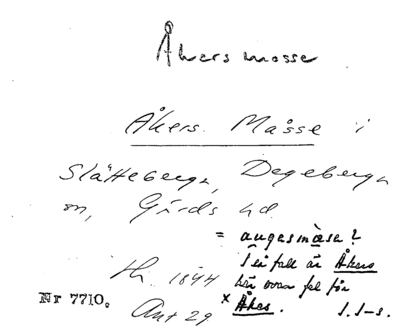 Åkers mosse
Åkers Måsse i
Slätteberga, Degeberga
sn, Gärds hd.
= augesmåsa?
I så fall är Åkers
här ovan fel för
× Åkes. I. I-s.
Th. 1844
Akt 29
Nr 7710.